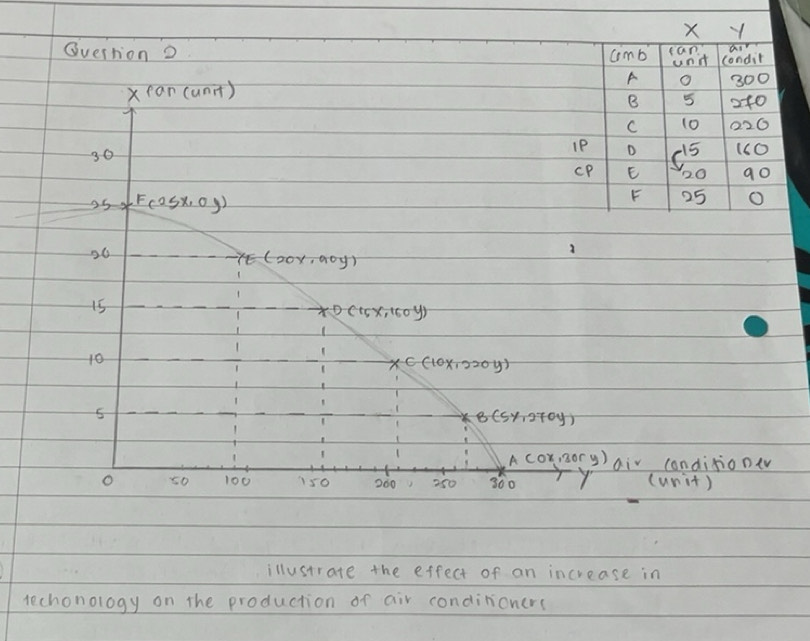 X Y
Question 2
Comb car unit air condit
A 0 300
B 5 270
C 10 220
IP D 15 160
CP E 20 90
F 25 0
X car (unit)
30
25 F(25x, 0y)
20 E (20x, 90y)
15 D (15x, 160y)
10 C (10x, 220y)
5 B (5x, 270y)
A (0x, 300y) air conditioner
0 50 100 150 200 250 300 Y (unit)
illustrate the effect of an increase in
techonology on the production of air conditioners